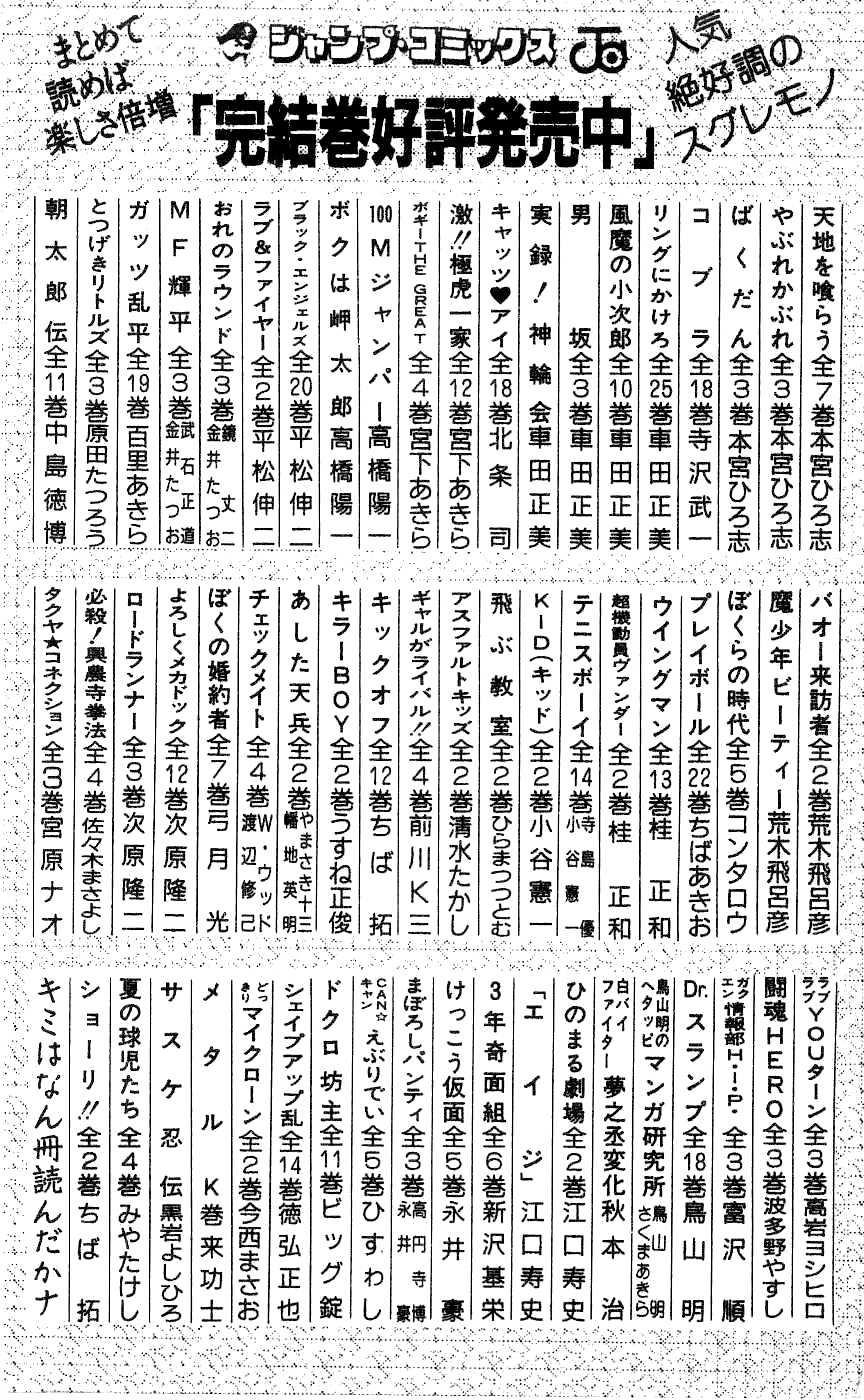 まとめて
読めば
楽しさ倍増
ジャンプ・コミックス
人気
絶好調の
スグレモノ
「完結巻好評発売中」
天地を喰らう全7巻本宮ひろ志
やぶれかぶれ全3巻本宮ひろ志
ばくだん全3巻本宮ひろ志
コブラ全18巻寺沢武一
リングにかけろ全25巻車田正美
風魔の小次郎全10巻車田正美
男坂全3巻車田正美
実録!神輪会車田正美
キャッツ♥アイ全18巻北条司
激!!極虎一家全12巻宮下あきら
ボギーTHE GREAT全4巻宮下あきら
100Mジャンパー高橋陽一
ボクは岬太郎高橋陽一
ブラック・エンジェルズ全20巻平松伸二
ラブ&ファイヤー全2巻平松伸二
おれのラウンド全3巻鏡丈二金井たつお
MF輝平全3巻武石正道金井たつお
ガッツ乱平全19巻百里あきら
とつげきリトルズ全3巻原田たつろう
朝太郎伝全11巻中島徳博
バオー来訪者全2巻荒木飛呂彦
魔少年ビーティー荒木飛呂彦
ぼくらの時代全5巻コンタロウ
プレイボール全22巻ちばあきお
ウイングマン全13巻桂正和
超機動員ヴァンダー全2巻桂正和
テニスボーイ全14巻寺島優小谷憲一
KID(キッド)全2巻小谷憲一
飛ぶ教室全2巻ひらまつつとむ
アスファルトキッズ全2巻清水たかし
ギャルがライバル!!全4巻前川K三
キックオフ全12巻ちば拓
キラーBOY全2巻うすね正俊
あした天兵全2巻やまさき十三幡地英明
チェックメイト全4巻W・ウッド渡辺修己
ぼくの婚約者全7巻弓月光
よろしくメカドック全12巻次原隆二
ロードランナー全3巻次原隆二
必殺!興農寺拳法全4巻佐々木まさよし
タクヤ★コネクション全3巻宮原ナオ
ラブラブYOUターン全3巻高岩ヨシヒロ
闘魂HERO全3巻波多野やすし
ガクエン情報部H・I・P・全3巻富沢順
Dr.スランプ全18巻鳥山明
鳥山明のヘタッピマンガ研究所鳥山明さくまあきら
白バイファイター夢之丞変化秋本治
ひのまる劇場全2巻江口寿史
「エイジ」江口寿史
3年奇面組全6巻新沢基栄
けっこう仮面全5巻永井豪
まぼろしパンティ全3巻高円寺博永井豪
CAN☆キャンえぶりでい全5巻ひすわし
ドクロ坊主全11巻ビッグ錠
シェイプアップ乱全14巻徳弘正也
どっきりマイクローン全2巻今西まさお
メタルK巻来功士
サスケ忍伝黒岩よしひろ
夏の球児たち全4巻みやたけし
ショーリ!!全2巻ちば拓
キミはなん冊読んだかナ